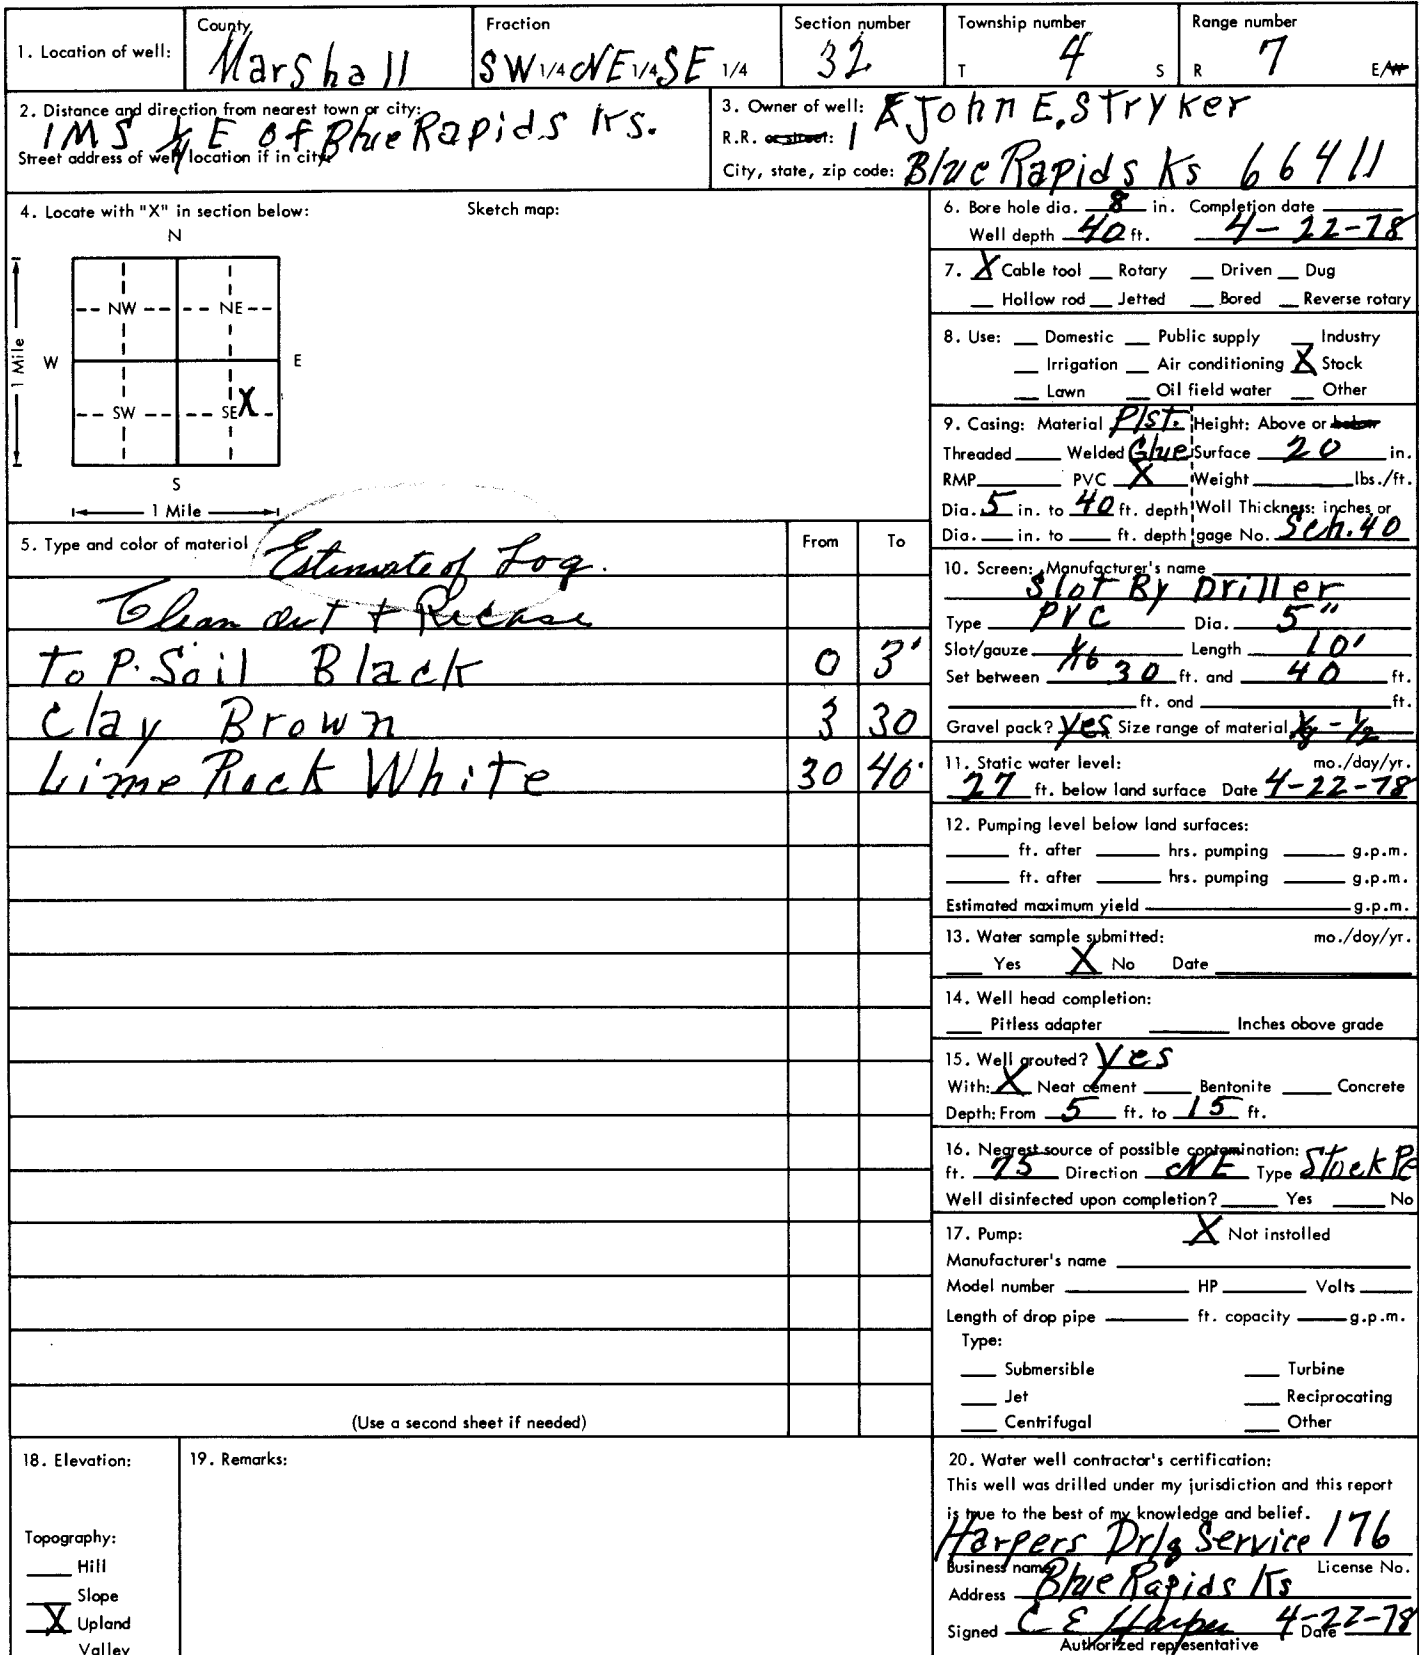 1. Location of well: County Marshall Fraction SW 1/4 NE 1/4 SE 1/4 Section number 32 Township number T 4 S Range number R 7 E/W
2. Distance and direction from nearest town or city: 1 M S 1/4 E of Blue Rapids Ks.
Street address of well location if in city:
3. Owner of well: John E. Stryker
R.R. or street: 1
City, state, zip code: Blue Rapids Ks 66411
4. Locate with "X" in section below: Sketch map:
N
NW NE
W E
1 Mile
SW SE X
S
1 Mile
5. Type and color of material From To
Estimate of Log.
Clean out + Recase
Top Soil Black 0 3'
Clay Brown 3 30
Lime Rock White 30 40'
(Use a second sheet if needed)
6. Bore hole dia. 8 in. Completion date
Well depth 40 ft. 4-22-78
7. X Cable tool Rotary Driven Dug
Hollow rod Jetted Bored Reverse rotary
8. Use: Domestic Public supply Industry
Irrigation Air conditioning X Stock
Lawn Oil field water Other
9. Casing: Material Plst. Height: Above or below
Threaded Welded Glue Surface 20 in.
RMP PVC X Weight lbs./ft.
Dia. 5 in. to 40 ft. depth Woll Thickness: inches or
Dia. in. to ft. depth gage No. Sch. 40
10. Screen: Manufacturer's name
Slot By Driller
Type PVC Dia. 5"
Slot/gauze 1/16 Length 10'
Set between 30 ft. and 40 ft.
ft. and ft.
Gravel pack? Yes Size range of material 1/8 - 1/2
11. Static water level: mo./day/yr.
27 ft. below land surface Date 4-22-78
12. Pumping level below land surfaces:
ft. after hrs. pumping g.p.m.
ft. after hrs. pumping g.p.m.
Estimated maximum yield g.p.m.
13. Water sample submitted: mo./doy/yr.
Yes X No Date
14. Well head completion:
Pitless adapter Inches above grade
15. Well grouted? Yes
With: X Neat cement Bentonite Concrete
Depth: From 5 ft. to 15 ft.
16. Nearest source of possible contamination:
ft. 75 Direction NE Type Stock Pe
Well disinfected upon completion? Yes No
17. Pump: X Not installed
Manufacturer's name
Model number HP Volts
Length of drop pipe ft. capacity g.p.m.
Type:
Submersible Turbine
Jet Reciprocating
Centrifugal Other
18. Elevation:
Topography:
Hill
Slope
X Upland
Valley
19. Remarks:
20. Water well contractor's certification:
This well was drilled under my jurisdiction and this report
is true to the best of my knowledge and belief.
Harpers Drlg Service 176
Business name License No.
Address Blue Rapids Ks
Signed C E Harper 4-22-78 Date
Authorized representative